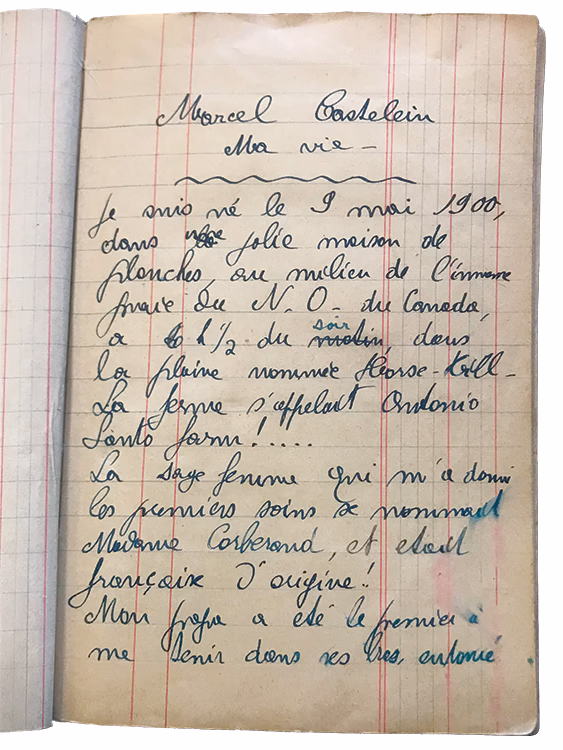 Marcel Castelein
Ma vie -
Je suis né le 9 mai 1900,
dans une jolie maison de
planches, au milieu de l'immense
prairie du N. O. du Canada,
a 1 1/2 du soir matin, dans
la plaine nommée Horse-Kill -
La ferme s'appelait Antonio
Santo farm !.....
La sage femme qui m'a donné
les premiers soins se nommait
Madame Corberand, et etait
française d'origine !
Mon papa a été le premier à
me tenir dans ses bras,